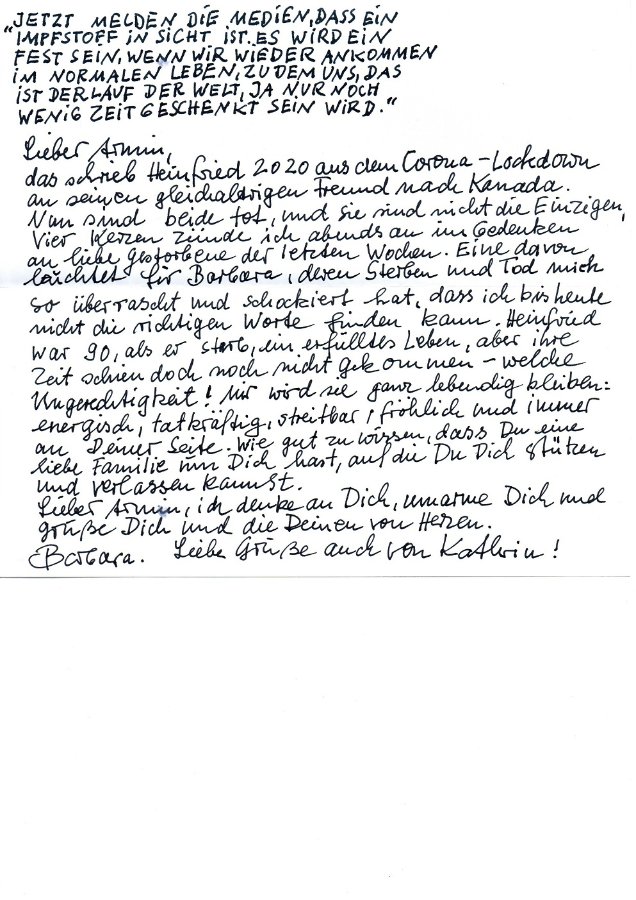 „JETZT MELDEN DIE MEDIEN, DASS EIN
IMPFSTOFF IN SICHT IST. ES WIRD EIN
FEST SEIN, WENN WIR WIEDER ANKOMMEN
IM NORMALEN LEBEN, ZU DEM UNS, DAS
IST DER LAUF DER WELT, JA NUR NOCH
WENIG ZEIT GESCHENKT SEIN WIRD.“
Lieber Armin,
das schrieb Heinfried 2020 aus dem Corona-Lockdown
an seinen gleichaltrigen Freund nach Kanada.
Nun sind beide tot, und sie sind nicht die Einzigen,
Vier Kerzen zünde ich abends an im Gedenken
an liebe Gestorbene der letzten Wochen. Eine davon
leuchtet für Barbara, deren Sterben und Tod mich
so überrascht und schockiert hat, dass ich bis heute
nicht die richtigen Worte finden kann. Heinfried
war 90, als er starb, ein erfülltes Leben, aber ihre
Zeit schien doch noch nicht gekommen – welche
Ungerechtigkeit! Mir wird sie ganz lebendig bleiben:
energisch, tatkräftig, streitbar, fröhlich und immer
an Deiner Seite. Wie gut zu wissen, dass Du eine
liebe Familie um Dich hast, auf die Du Dich stützen
und verlassen kannst.
Lieber Armin, ich denke an Dich, umarme Dich und
grüße Dich und die Deinen von Herzen.
Barbara. Liebe Grüße auch von Kathrin!